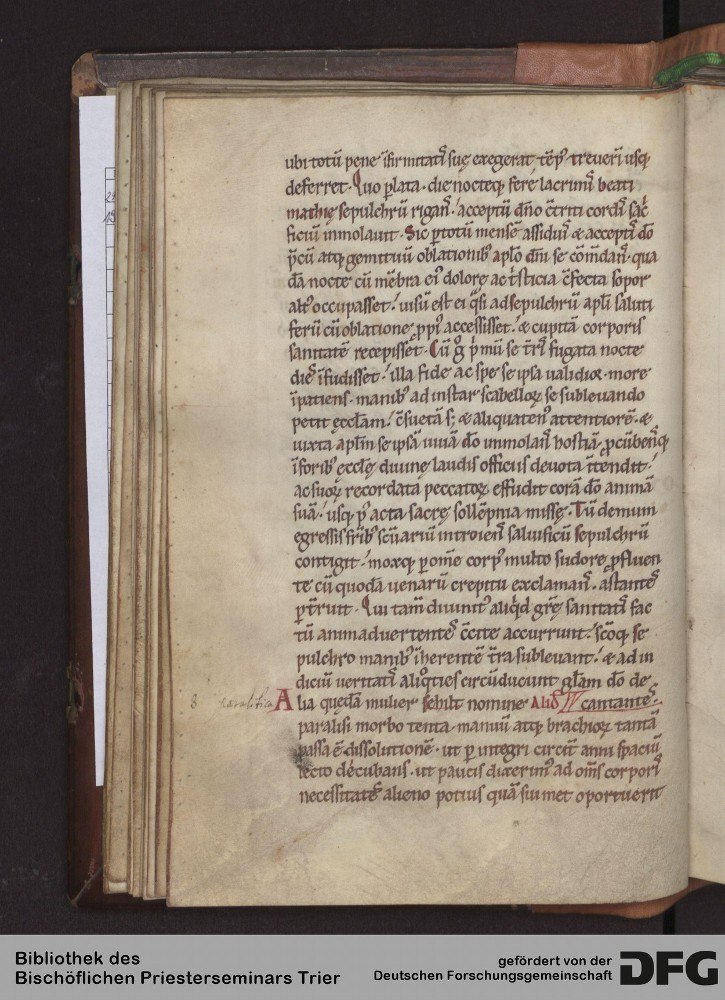 ubi totũ pene ĩfirmitatis suę exegerat tẽpꝰ treueri usq;
deferret. Quo ꝑlata. die nocteq; fere lacrimis beati
mathię sepulchrũ rigans. acceptũ dño cõtriti cordis sac
ficiũ inmolauit. Sic ꝑ totũ mensẽ assiduis & acceptis dõ
p̃cũ atq; gemituũ oblationibꝰ aplo dñi se cõmẽdans. qua
dã nocte cũ mẽbra eiꝰ dolore ac tristicia cõfecta sopor
altꝰ occupasset. uisũ est ei q̃si ad sepulchrũ apli saluti
ferũ cũ oblatione ꝓpius accessisset. & cupitã corporis
sanitatẽ recepisset. Cũ g̊ primũ se terris fugata nocte
dies ĩfudisset. illa fide ac spe se ipsa ualidior. more
ĩpatiens. manibꝰ ad instar scabelloꝝ se subleuando
petit ęcclam. cõsueta s; & aliquatenꝰ attentiorẽ. &
iuxta aplm se ipsã uiuã dõ immolans hostiã. ꝓcũbensq;
ĩ foribꝰ ecclę diuinę laudis officiis deuota ĩtendit.
ac suoꝝ recordata peccatoꝝ. effudit corã dõ animã
suã. usq; ꝑacta sacrę sollẽpnia missę. Tũ demum
egressis fribꝰ scũariũ introiens saluificũ sepulchrũ
contigit. moxq; ꝑ om̃e corpꝰ multo sudore ꝓfluen
te cũ quodã uenarũ crepitu exclamans. astantes
ꝑtrruit. Qui tam̃ diuinitꝰ aliq̃d grę sanitatis fac
tũ animaduertentes cc̃ite accurrunt. scõq; se
pulchro manibꝰ ĩherentẽ tr̃a subleuant. & ad in
diciũ ueritatis aliq̊ties circũducunt glam dõ de
8 paralitica Alia quedã mulier sehilt nomine Aliđ IV cantantes.
paralisi morbo tenta. manuũ atq; brachioꝝ tantã
passa ẽ dissolutionẽ. ut ꝑ integri circit̃ anni spaciũ
lecto decubans. ut paucis dixerimꝰ ad om̃s corporis
necessitates alieno potius quã suimet oportuerit
Bibliothek des
Bischöflichen Priesterseminars Trier
gefördert von der
Deutschen Forschungsgemeinschaft
DFG